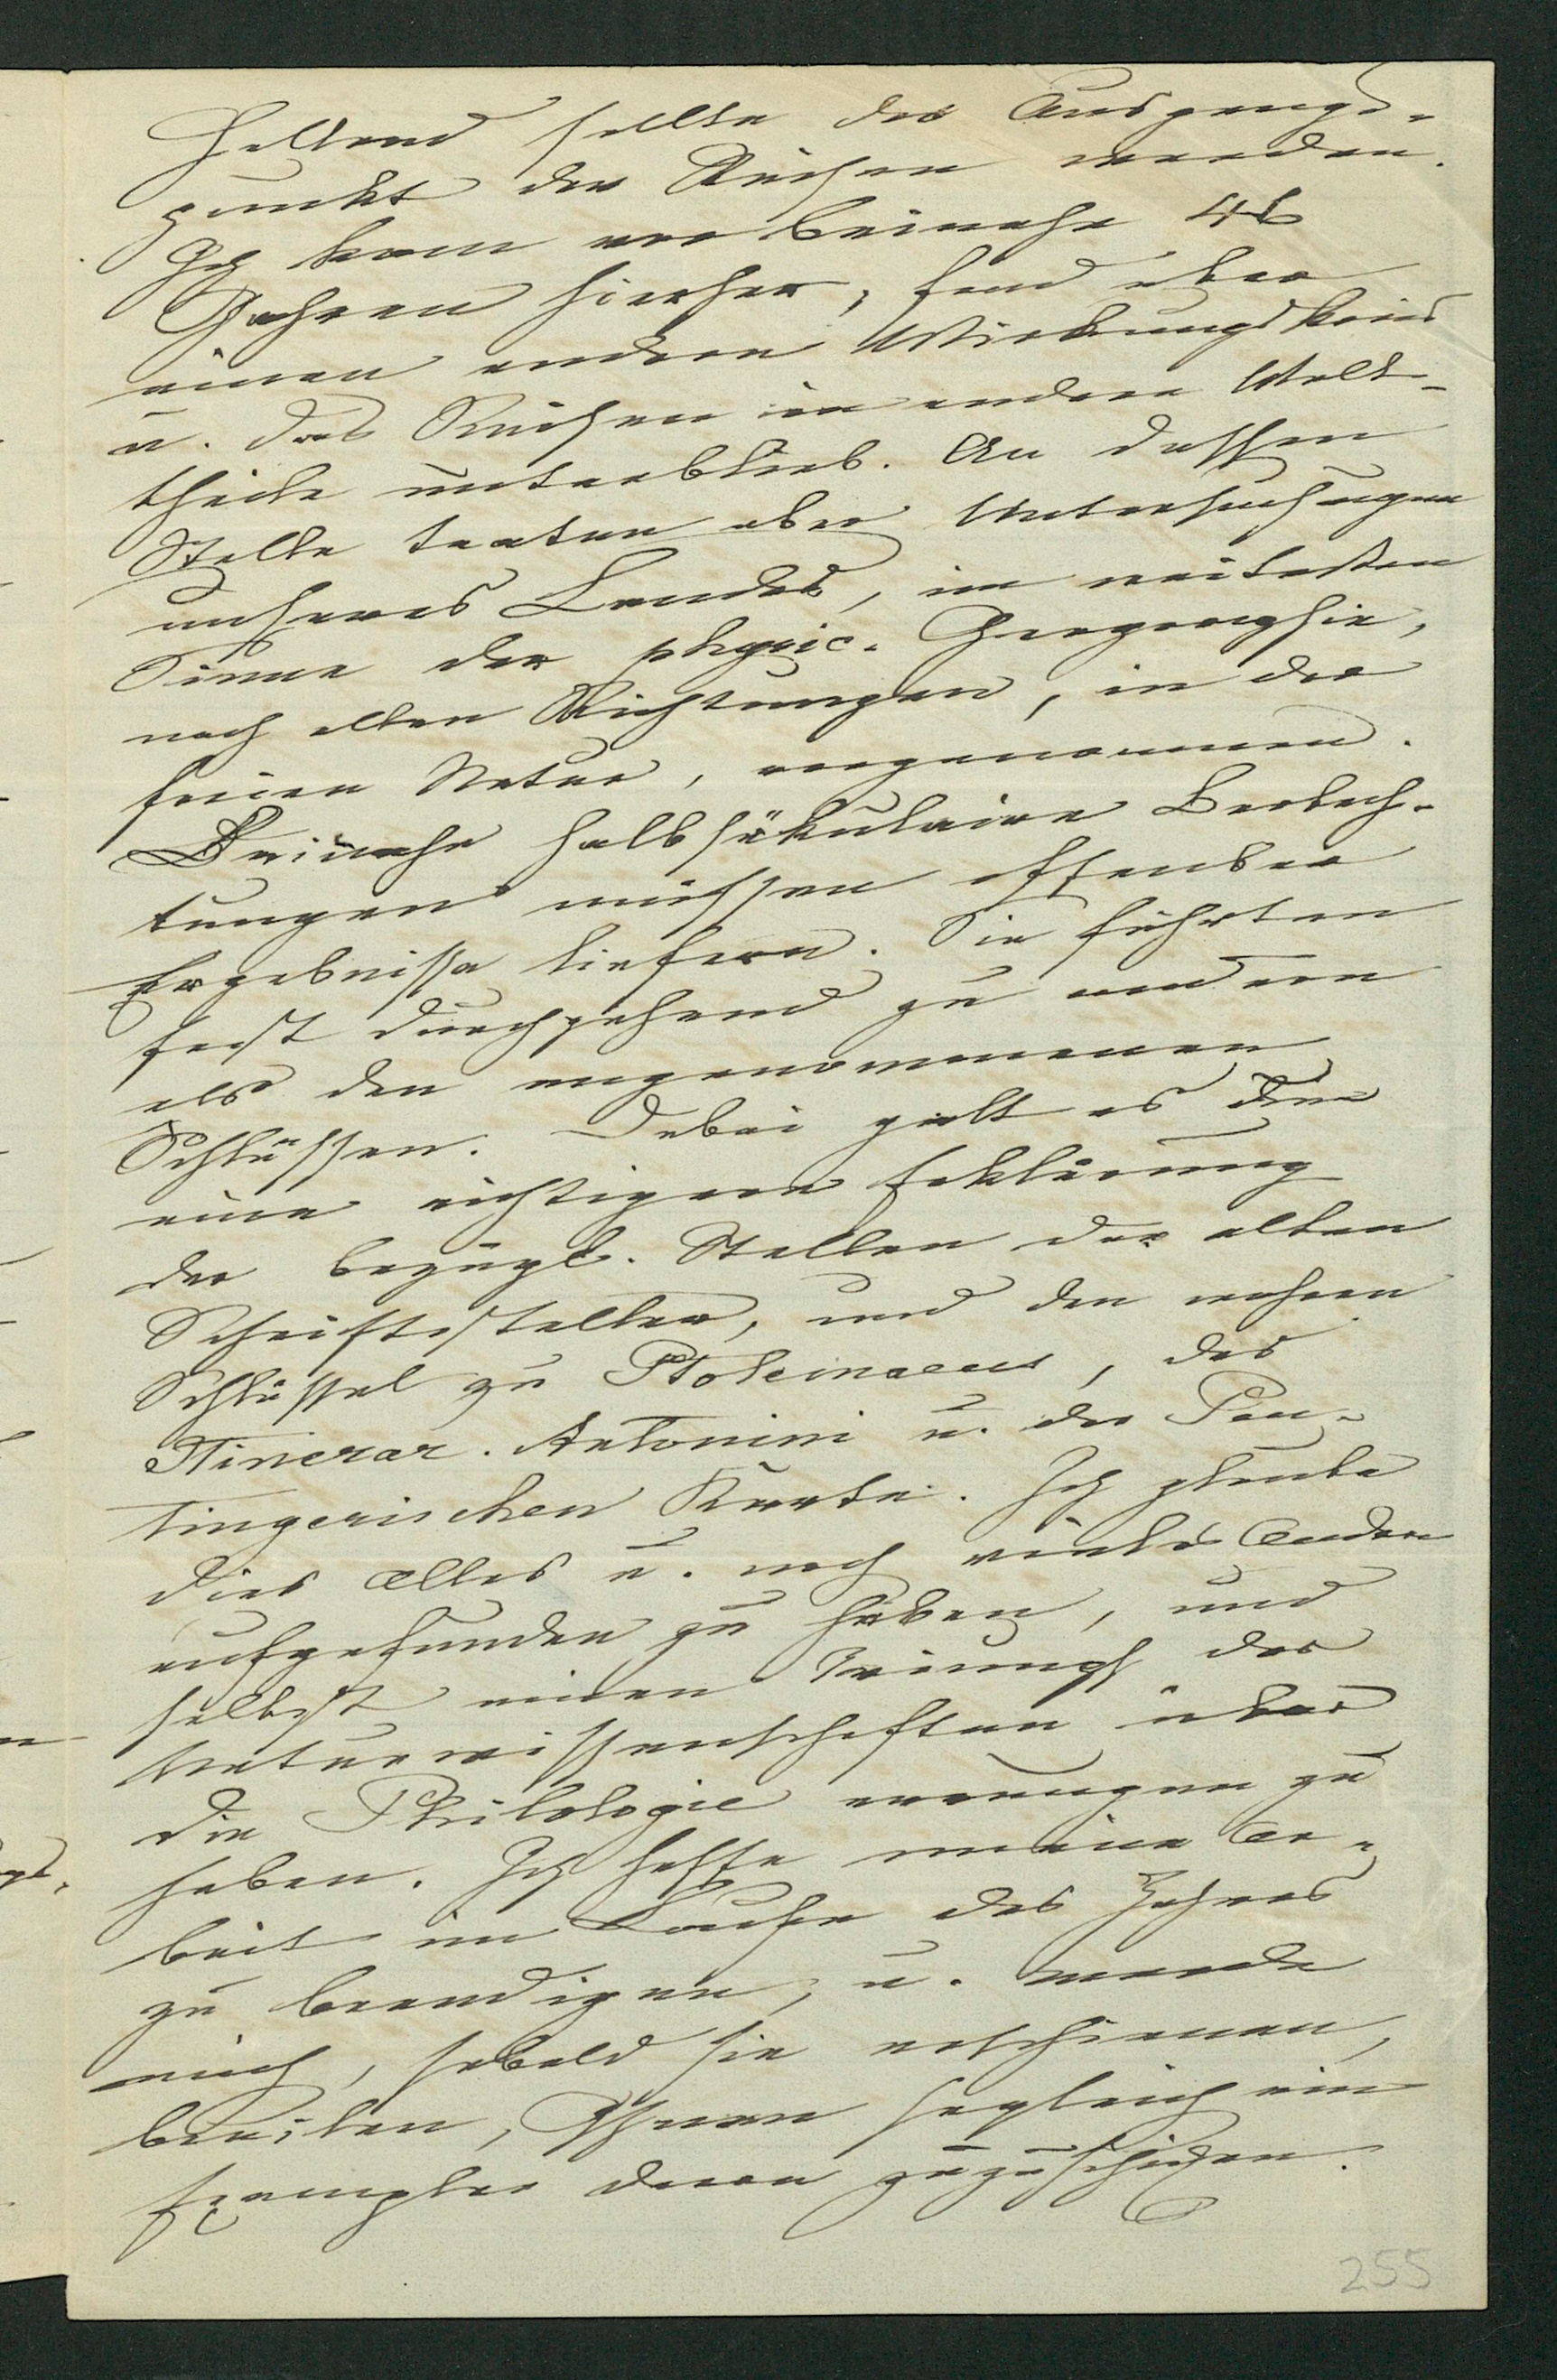 Holland sollte der Ausgangs-
punkt der Reisen werden.
Ich kam vor beinahe 46
Jahren hierher, fand aber
einen andern Wirkungskreis
u. das Reisen in andere Welt-
theile unterblieb. An dessen
Stelle traten aber Untersuchungen
unseres Landes, im weitesten
Sinne der physic. Geographie,
nach allen Richtungen, in der
freien Natur, vorgenommen.
Beinahe halbsäkulaire Beobach-
tungen müssen offenbar
Ergebnisse liefern. Sie führten
fast durchgehend zu andern
als den angenommenen
Schlüssen. Dabei galt es
eine richtigere Erklärung
der bezügl. Stellen der alten
Schriftsteller, und den wahren
Schlüssel zu Ptolemaeus, des
Itinerar. Antonini u. der Peu-
tingerischen Karte. Ich glaube
dies Alles u. noch vieles Andere
aufgefunden zu haben, und
selbst einen Triumph der
Naturwissenschaften über
die Philologie errungen zu
haben. Ich hoffe meine Ar-
beit im Laufe des Jahres
zu beendigen, u. werde
mich, sobald sie erschienen,
beeilen, Ihnen sogleich ein
Exemplar davon zuzuschicken.
255